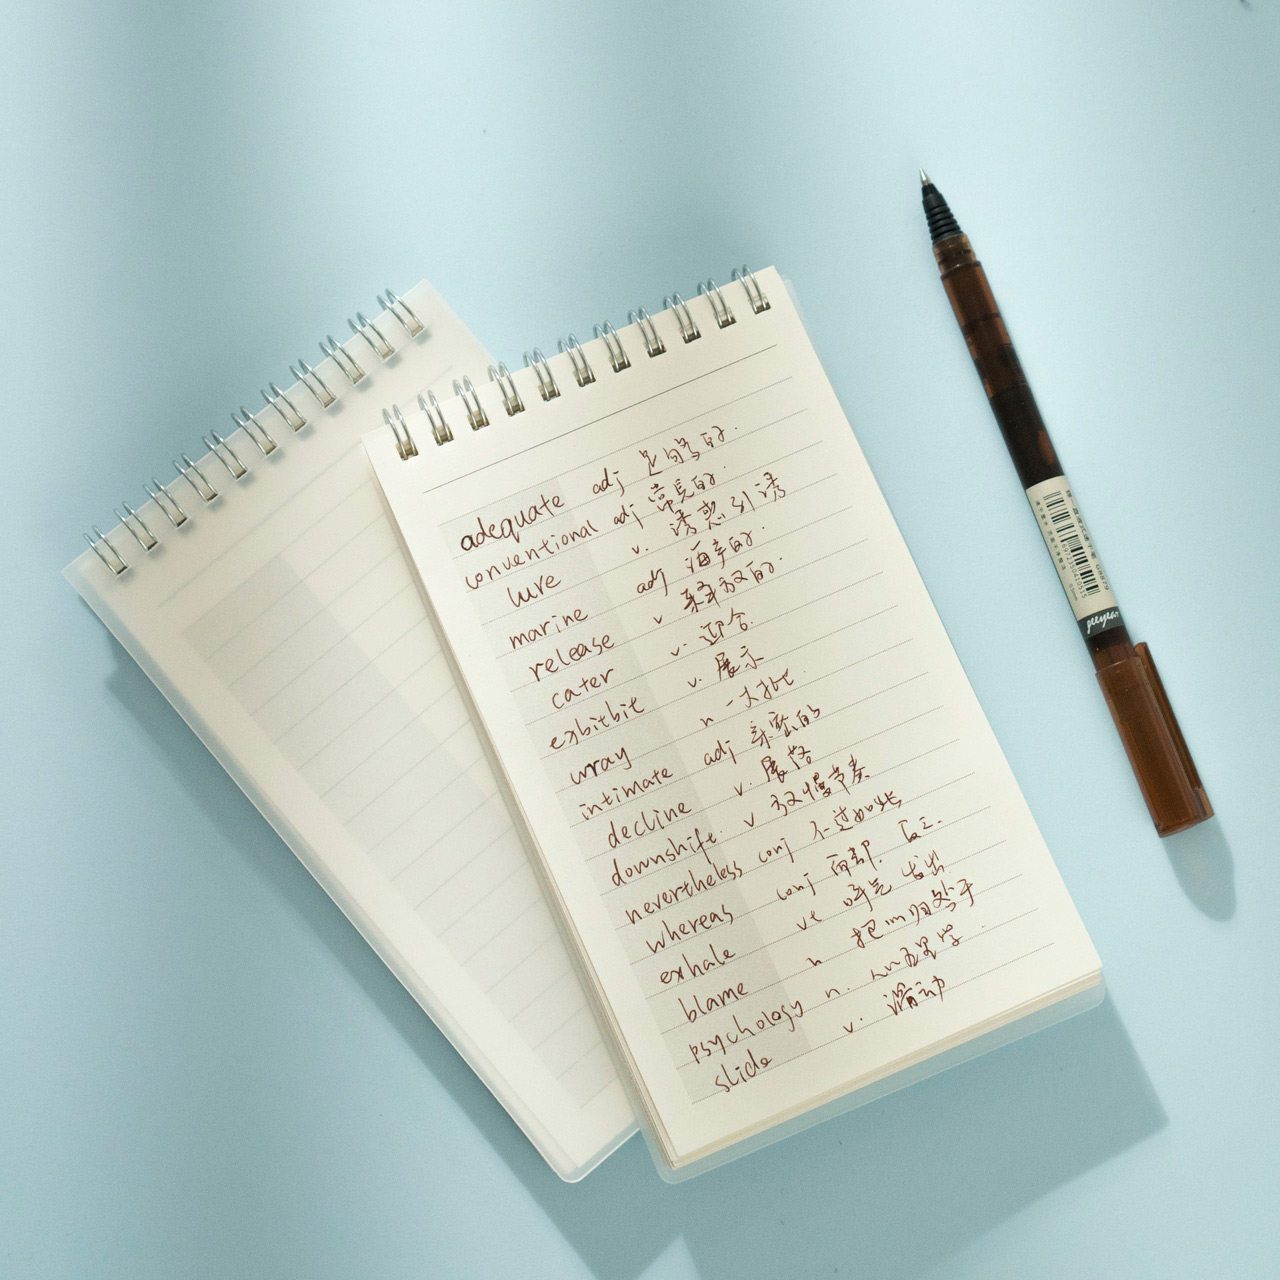 adequate adj 足够的.
conventional adj 常見的.
lure v. 诱惑引诱
marine adj 海的.
release v 释放的.
cater v. 迎合.
exbitbit v. 展示
wray n 一大批.
intimate adj 亲密的
decline v.
downshift. v 放慢节奏
nevertheless conj 不过如此
whereas conj 而却.
exhale vt 呼气 发出
blame n 把 归处于
psychology n. 心理学.
slide v. 滑动
geeyear